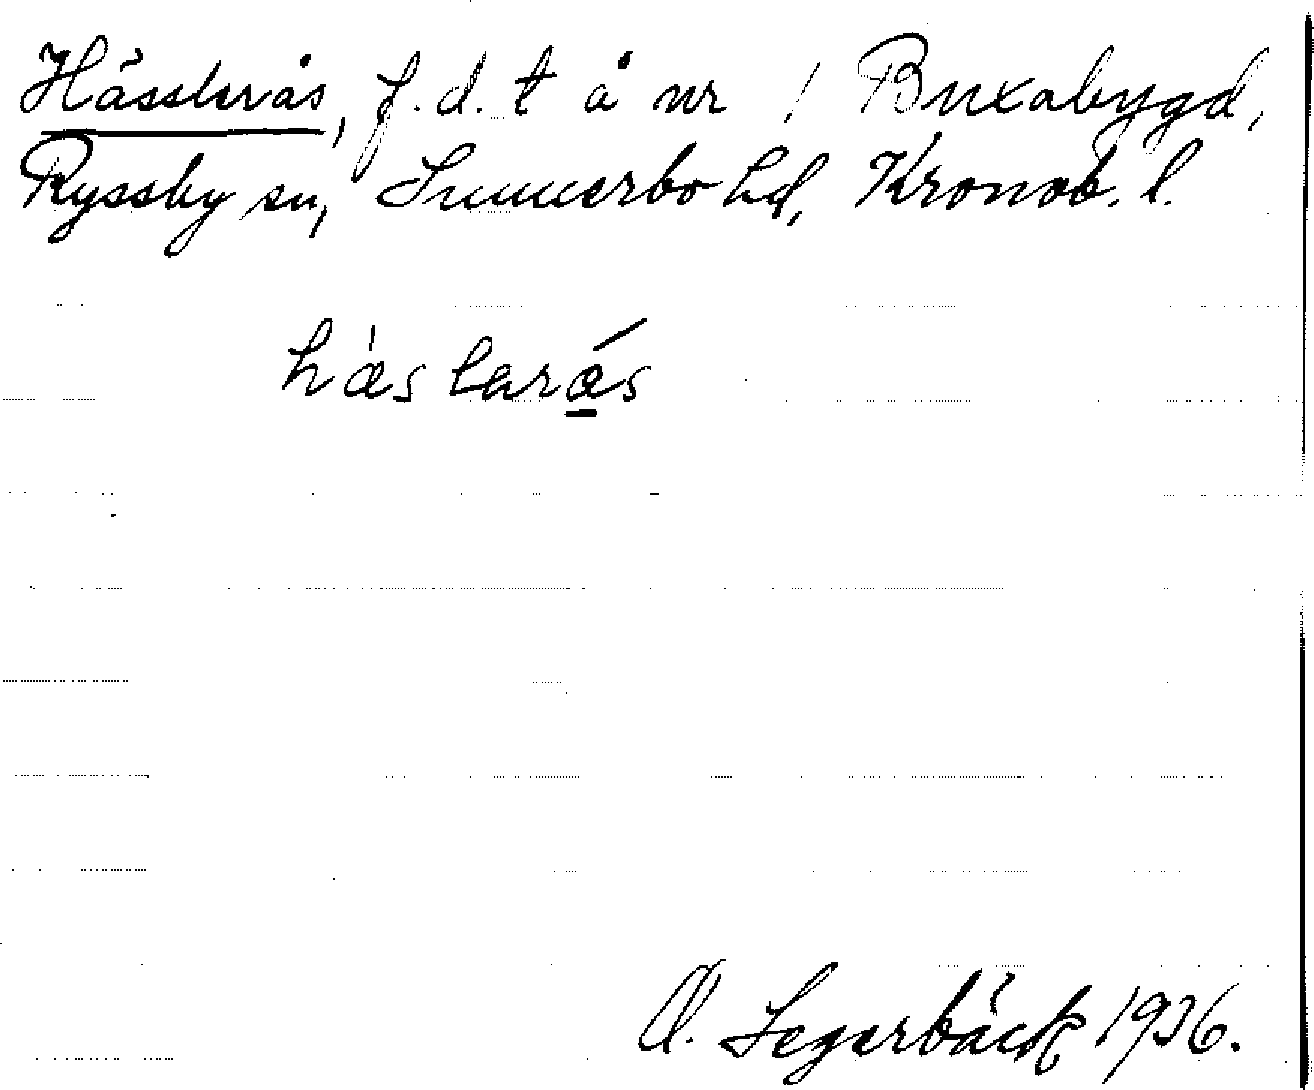 Hässlerås, f.d. t å nr 1 Buxabygd,
Ryssby sn, Sunnerbo hd, Kronob. l.
hæ̀slarás
O. Segerbäck 1936.